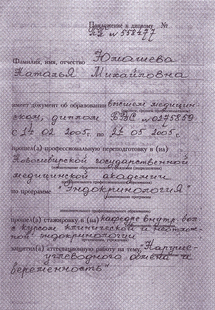 Приложение к диплому №
ПП №558477
Фамилия, имя, отчество Юмашева
Наталья Михайловна
имеет документ об образовании высшем медицин-
ском, диплом БВС №0275859
с 17 02 2005г. по 27 05 2005г.
прошел(а) профессиональную переподготовку в (на)
Новосибирской государственной
медицинской академии
по программе "Эндокринология"
прошел(а) стажировку в (на) кафедре внутр. бол.
с курсом клинической и неотлож-
ной эндокринологии
защитил(а) аттестационную работу на тему "Наруше-
углеводного обмена и
беременность"